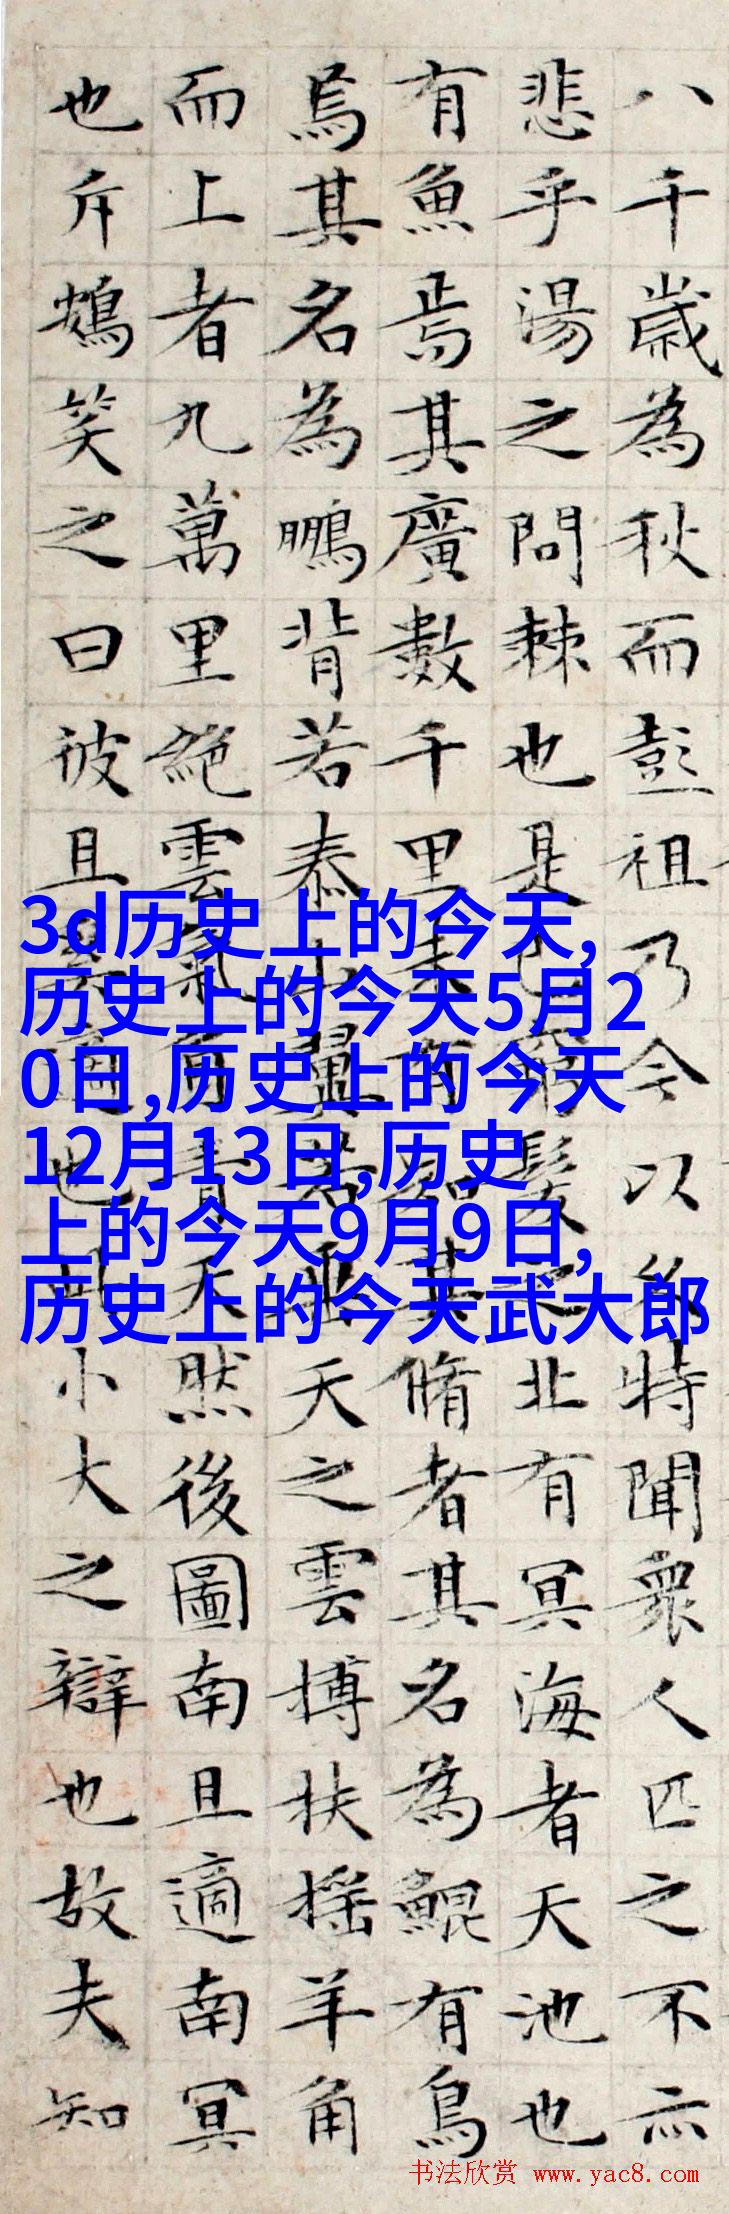 八千歲為秋而彭祖乃今以久特聞眾人匹之不亦
悲乎湯之問棘也是已窮髮之北有冥海者天池也
有魚焉其廣數千里未有知其脩者其名為鯤有鳥
焉其名為鵬背若泰山翼若垂天之雲搏扶搖羊角
而上者九萬里絕雲氣負青天然後圖南且適南冥
也斥鴳笑之曰彼且奚適也此小大之辯也故夫知
3d历史上的今天,
历史上的今天5月2
0日,历史上的今天
12月13日,历史
上的今天9月9日,
历史上的今天武大郎
书法欣赏 www.yac8.com